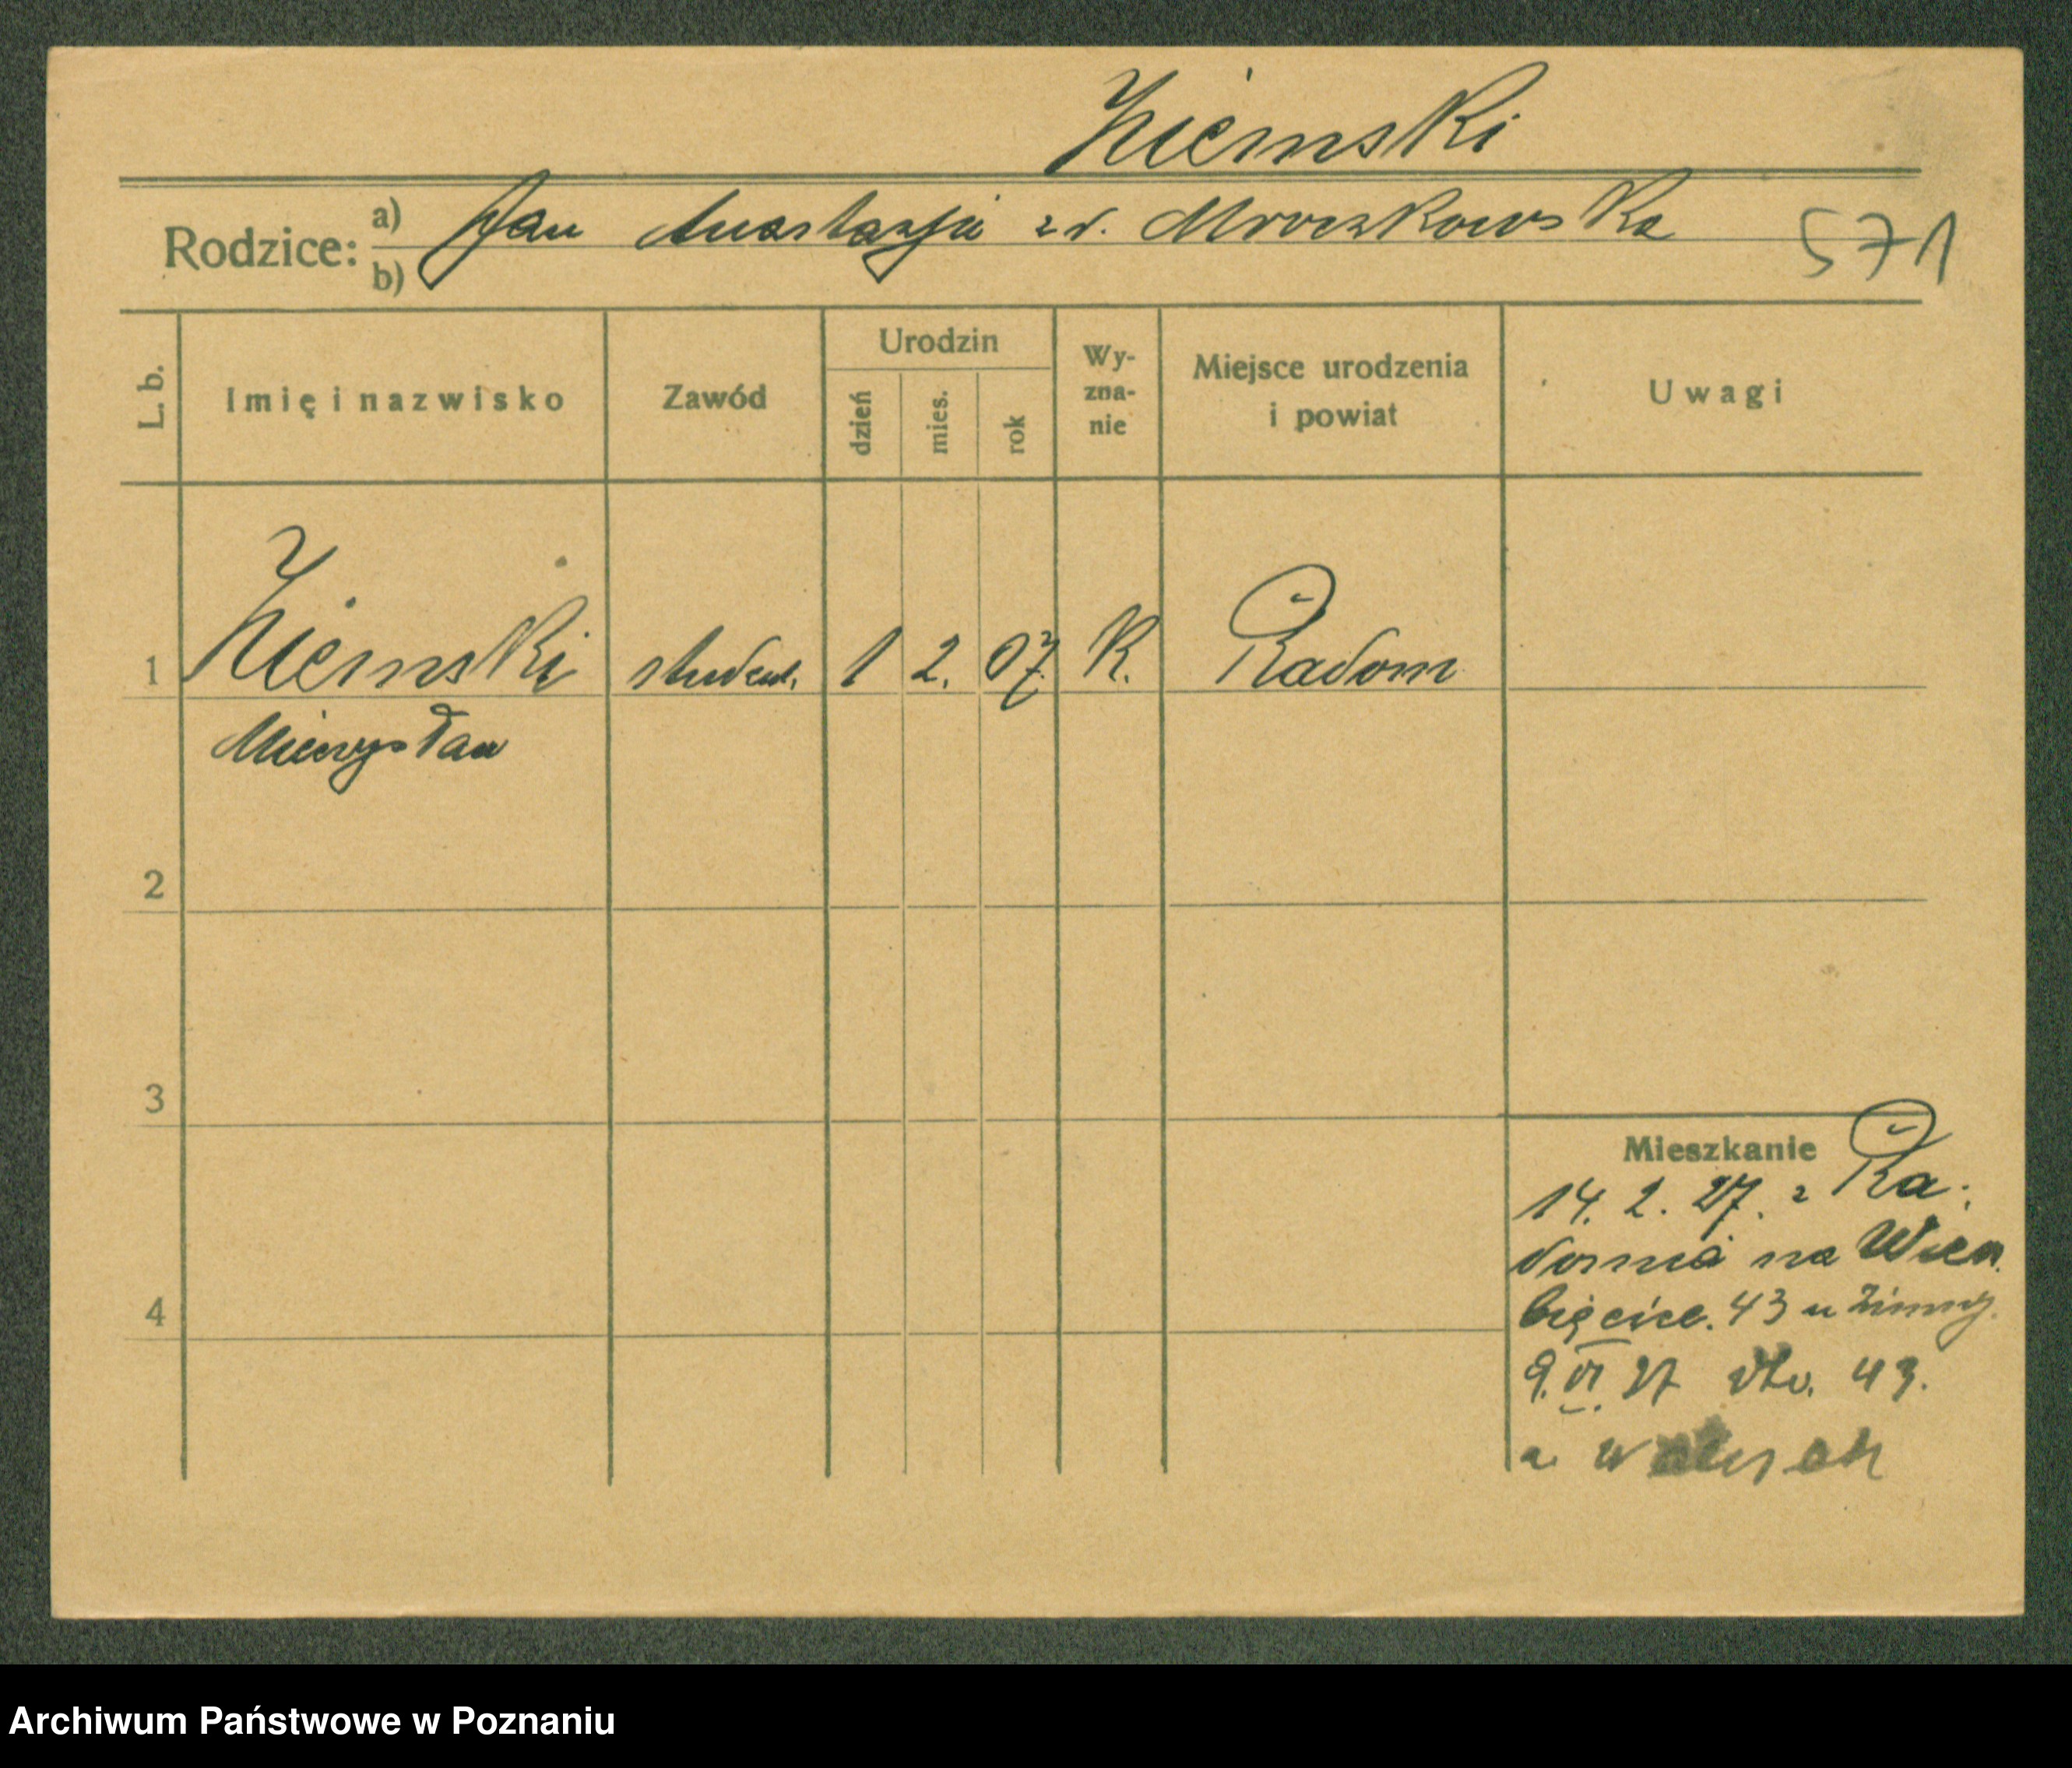 Ziemski
Rodzice: a) Jan Anastazja z d. Mroczkowska
b)
571
L. b. Imię i nazwisko Zawód Urodzin dzień mies. rok Wy-zna-nie Miejsce urodzenia i powiat Uwagi
1 Ziemski student. 1 2. 07 K. Radom
Mieczysław
2
3
Mieszkanie
14. 2. 27. z Ra-
domia na Wierz
bięcice. 43 u
4
9. VI 27 43.
Archiwum Państwowe w Poznaniu